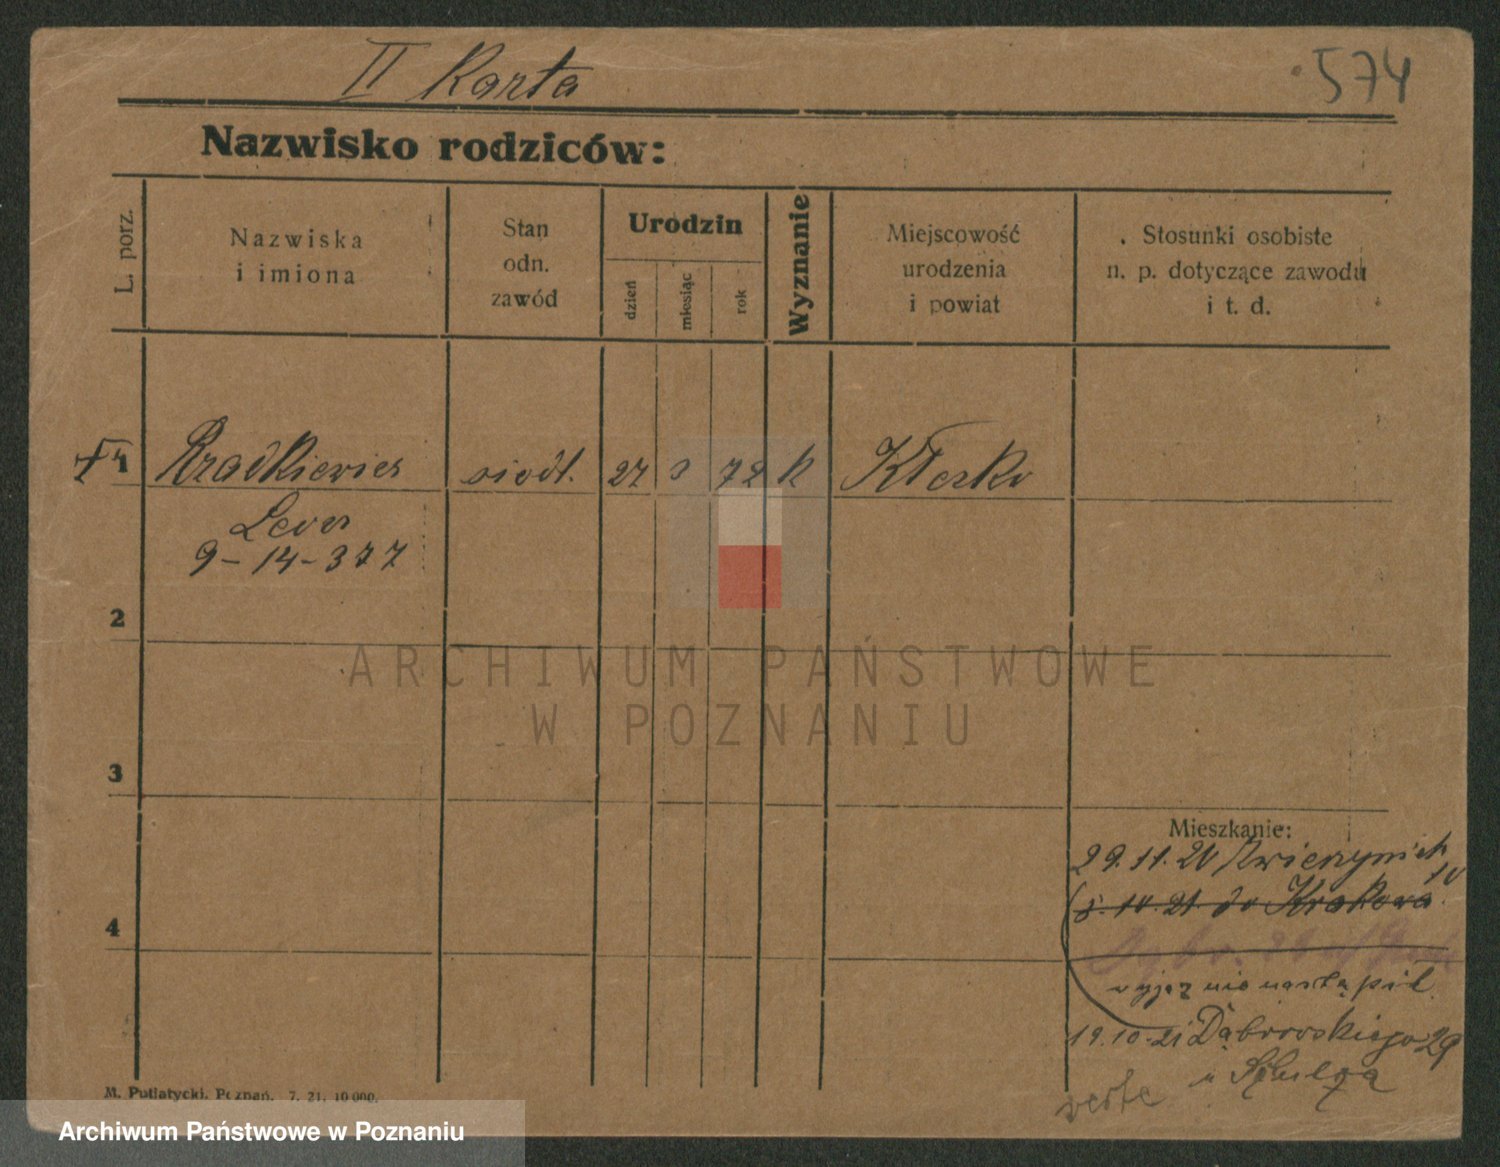 II Karta
574
Nazwisko rodziców:
L. porz.
Nazwiska
i imiona
Stan
odn.
zawód
Urodzin
dzień
miesiąc
rok
Wyznanie
Miejscowość
urodzenia
i powiat
Stosunki osobiste
n. p. dotyczące zawodu
i t. d.
1
siodł. 27 3 72 k Kłecko
Leon
9-14-377
2
ARCHIWUM PAŃSTWOWE
W POZNANIU
3
Mieszkanie:
29.11.20
5.10.21 do Krakowa
4
wyjaz nie nastąpił
19.10.21 Dąbrowskiego 29
u Szulca
verte
M. Putiatycki, Poznań. 7. 21. 10 000.
Archiwum Państwowe w Poznaniu